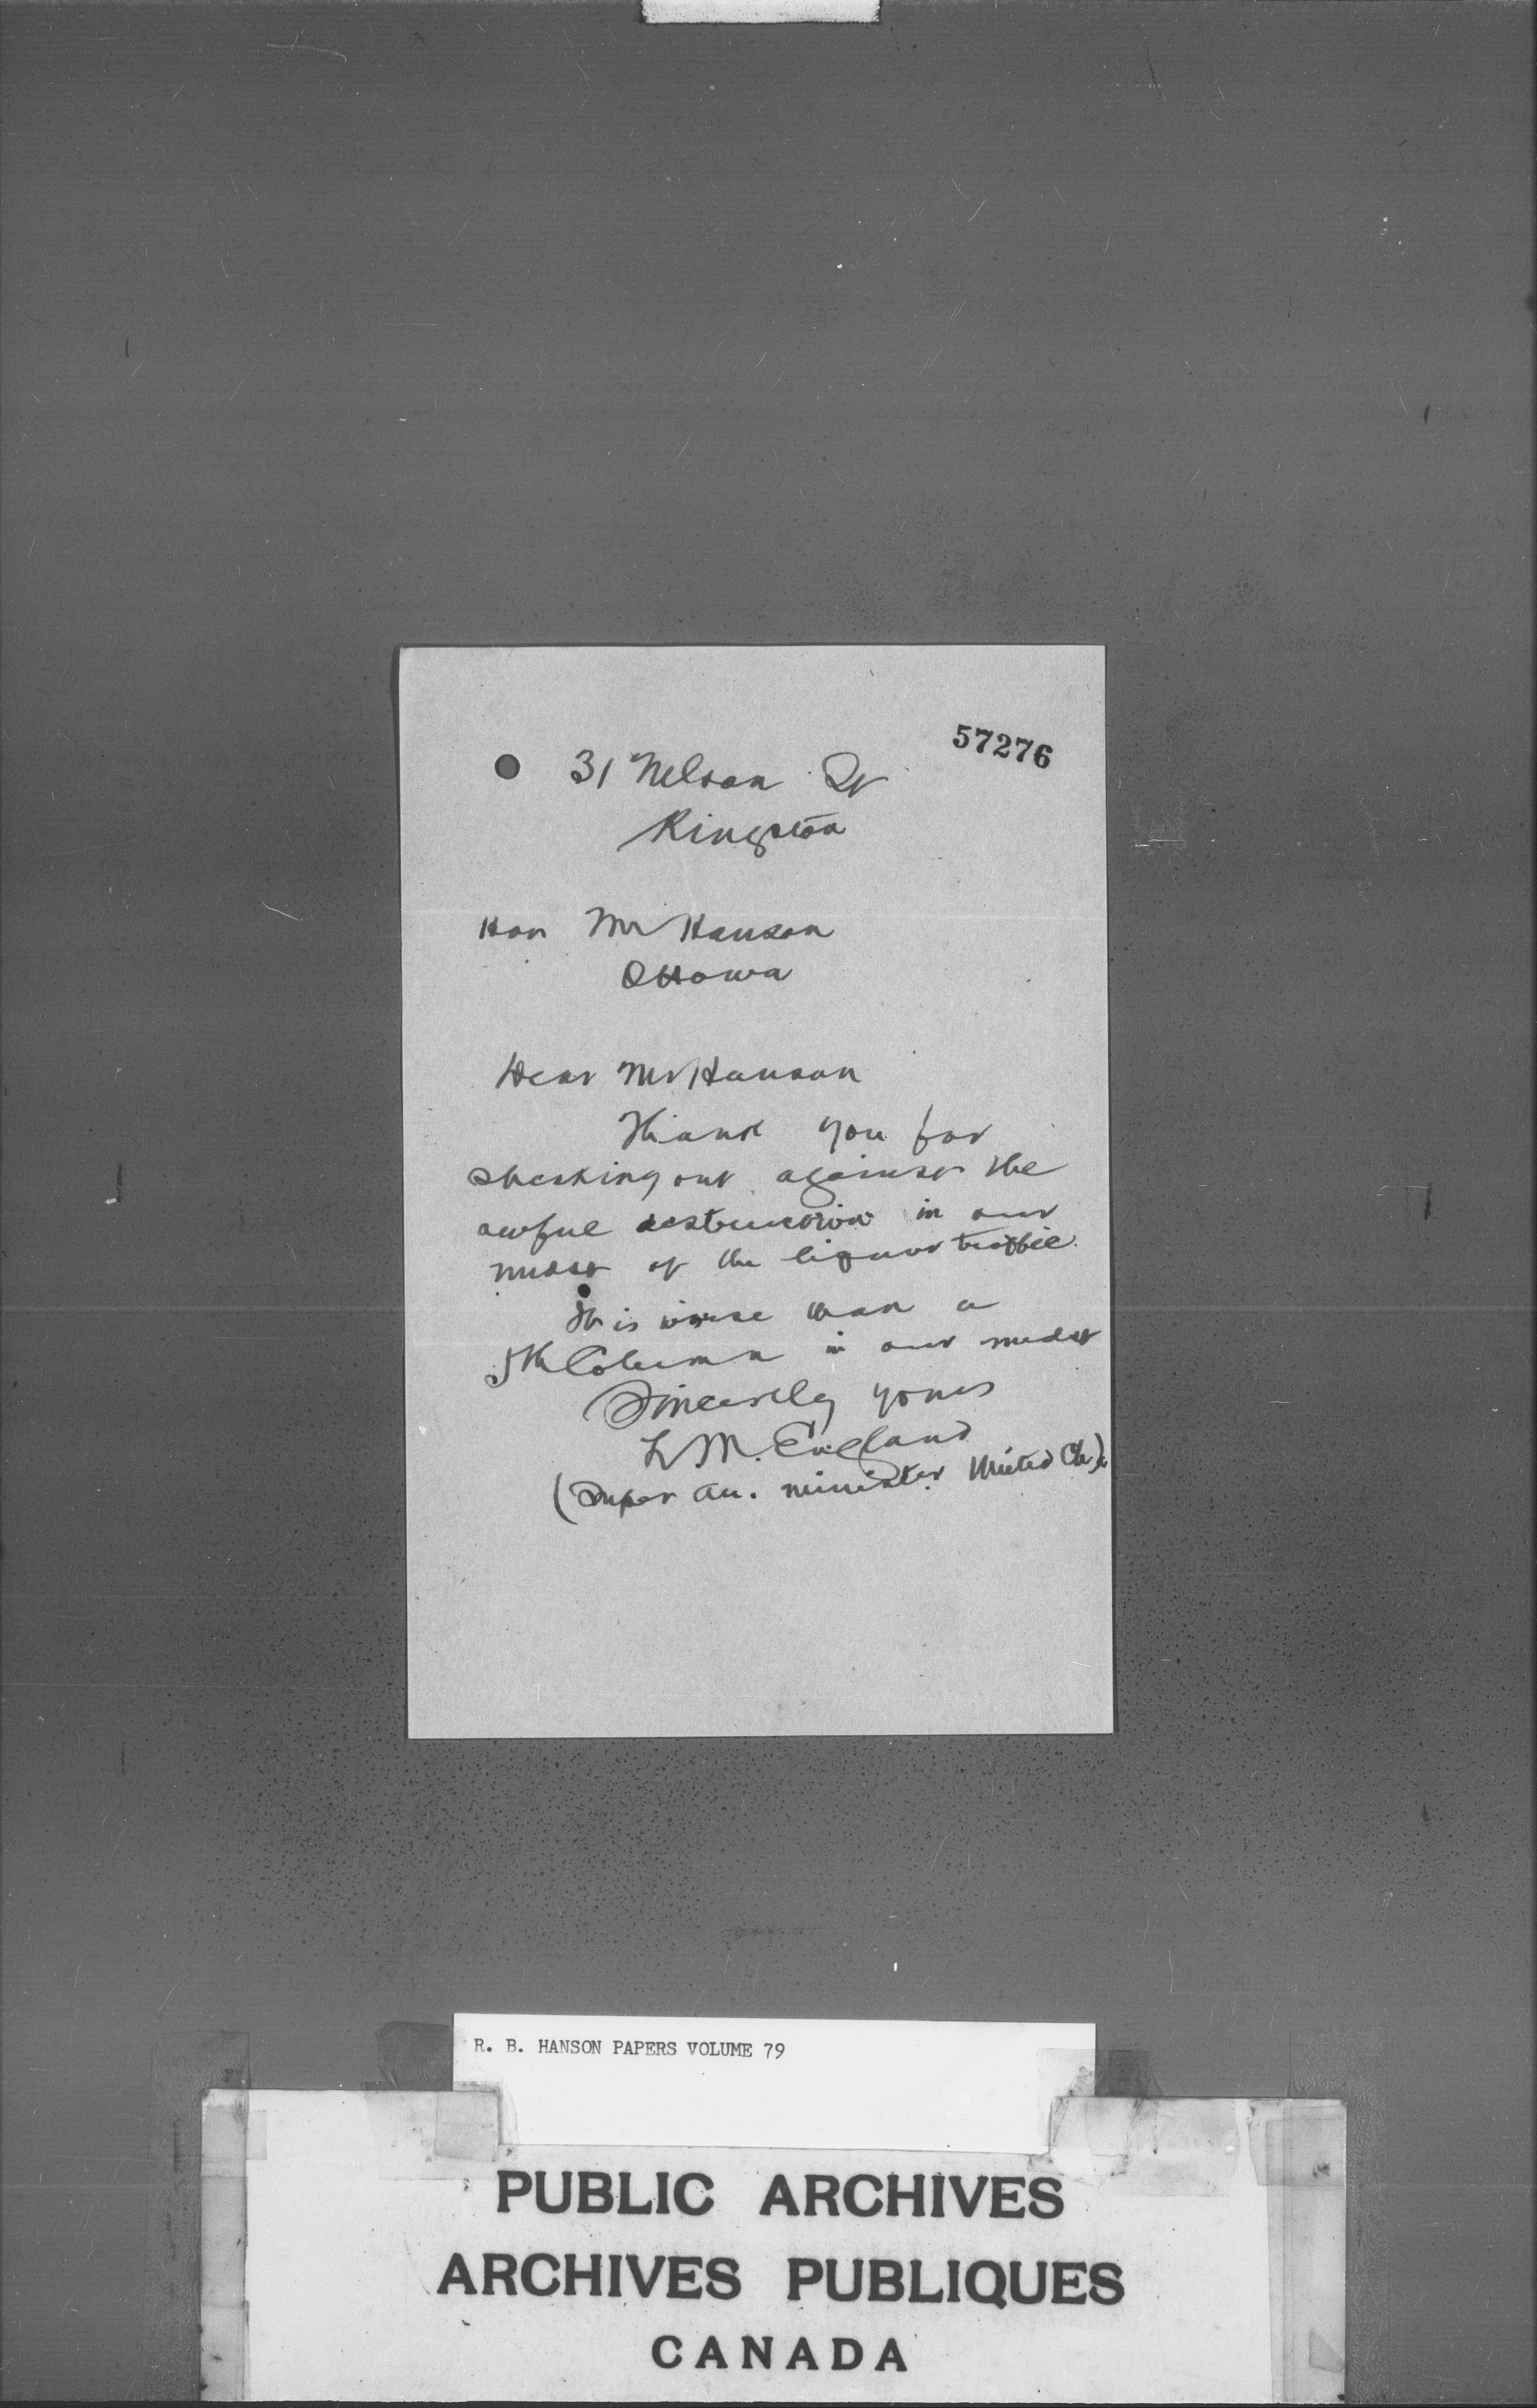 57276
31 Nelson St
Kingston
Hon Mr Hanson
Ottowa
Dear Mr Hanson
Thank you for
speaking out against the
awful destruction in our
midst of the liquor traffic.
It is worse than a
5th Column in our midst
Sincerely yours
L M. England
(Super an. minister United Ch.)
R. B. HANSON PAPERS VOLUME 79
PUBLIC ARCHIVES
ARCHIVES PUBLIQUES
CANADA